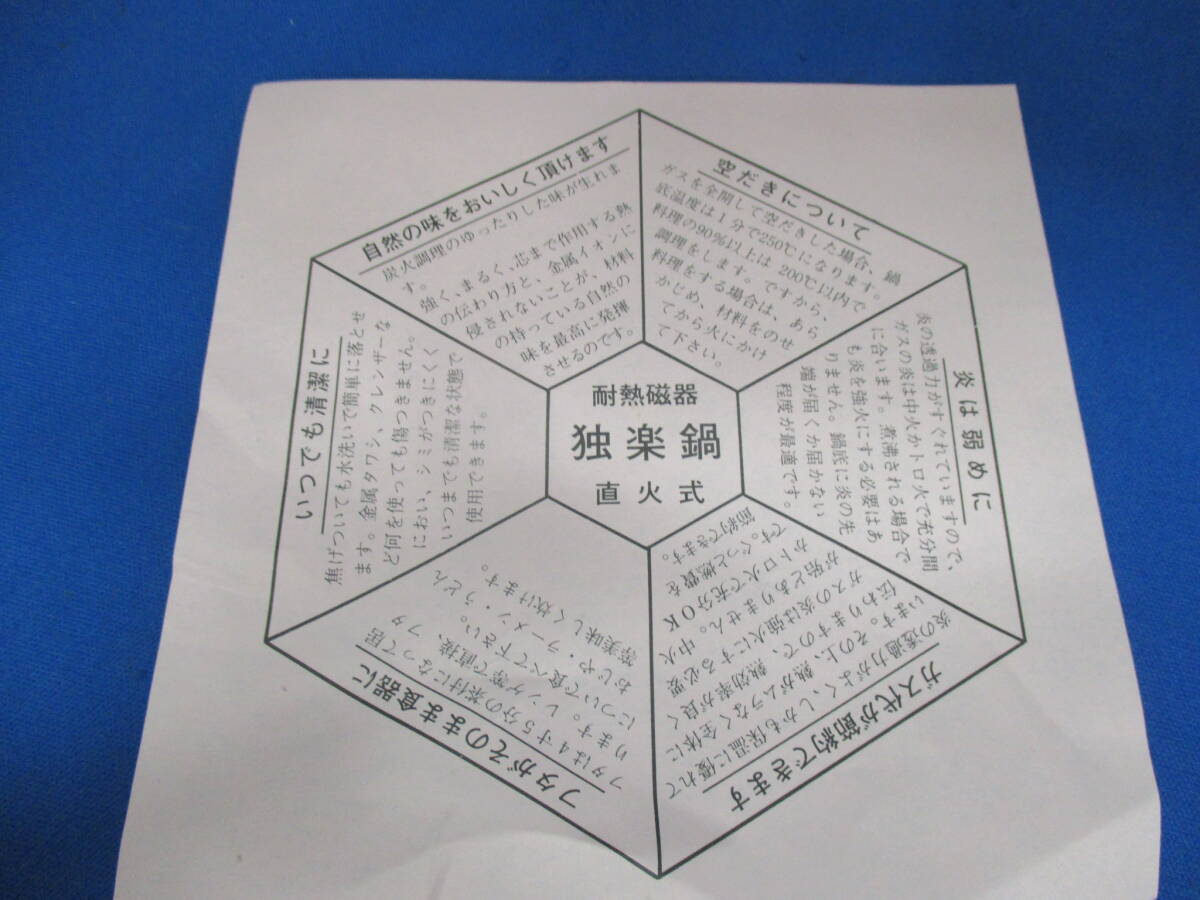 耐熱磁器
独楽鍋
直火式
自然の味をおいしく頂けます
炭火調理のゆったりした味が生れま
す。
強く、まるく、芯まで作用する熱
の伝わり方と、金属イオンに
侵されないことが、材料
の持っている自然の
味を最高に発揮
させるのです。
空だきについて
ガスを全開して空だきした場合、鍋
底温度は1分で250℃になります。
料理の90%以上は 200℃以内で
調理をします。ですから、
料理をする場合は、あら
かじめ、材料をのせ
てから火にかけ
て下さい。
炎は弱めに
炎の透過力がすぐれていますので、
ガスの炎は中火かトロ火で充分間
に合います。煮沸される場合で
も炎を強火にする必要はあ
りません。鍋底に炎の先
端が届くか届かない
程度が最適です。
ガス代が節約できます
炎の透過力がよく、しかも保温に優れて
います。その上、熱がムラなく全体に
伝わりますので、熱効率が良く
ガスの炎は強火にする必要
が殆どありません。中火
かトロ火で充分OK
です。ぐっと燃費を
節約できます。
フタがそのまま食器に
フタは4寸5分の茶付になって居
ります。レンゲ等で直接、フタ
について食べて下さい。
おじや・ラーメン・うどん
等美味しく炊けます。
いつでも清潔に
焦げついても水洗いで簡単に落とせ
ます。金属タワシ、クレンザーな
ど何を使っても傷つきません。
におい、シミがつきにくく
いつまでも清潔な状態で
使用できます。